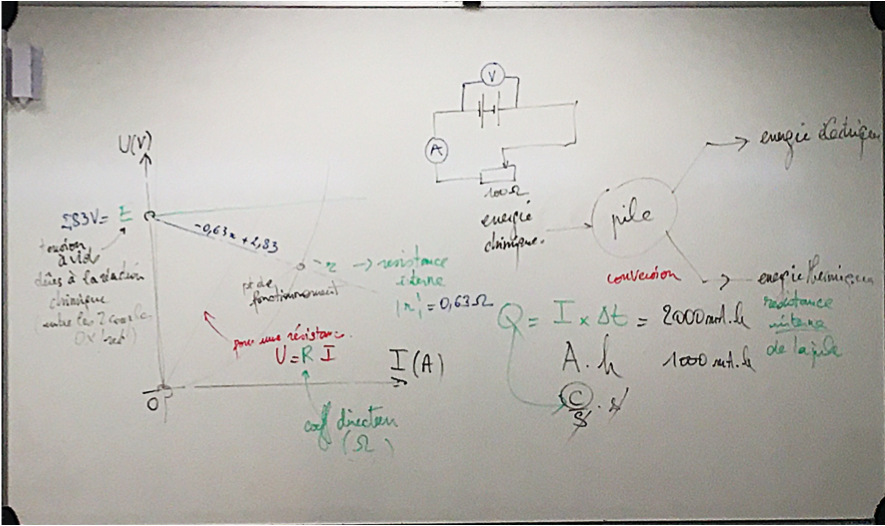 U(V)
2,83V = E
tension
à vide
dûes à la réaction
chimique
entre les 2 couples
OX/red
-0,63x + 2,83
pt de
fonctionnement
- r → résistance
interne
|r| = 0,63 Ω
pour une résistance
U = R I
I (A)
0
coef direction
(Ω)
V
A
100Ω
énergie
chimique
pile
énergie électrique
conversion
énergie thermique
résistance
interne
de la pile
Q = I × Δt = 2000 mA.h
A.h
1000 mA.h
C/s . s